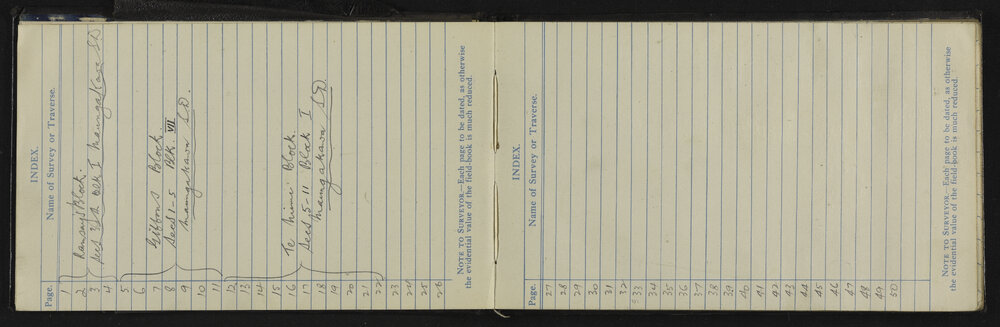 INDEX.
Page. Name of Survey or Traverse.
1
2 Ramsay Block.
3 Secs 3, 3A Blk I Maungakawa SD
4
5
6
7 Gibbons Block.
8 Secs 1-5 Blk. VII
9 Maungakawa S.D.
10
11
12
13
14
15
16 Te Miro Block.
17 Secs 5-11 Block I
18 Maungakawa S.D.
19
20
21
22
23
24
25
26
NOTE TO SURVEYOR.—Each page to be dated, as otherwise
the evidential value of the field-book is much reduced.
INDEX.
Page. Name of Survey or Traverse.
27
28
29
30
31
32
33
34
35
36
37
38
39
40
41
42
43
44
45
46
47
48
49
50
NOTE TO SURVEYOR.—Each page to be dated, as otherwise
the evidential value of the field-book is much reduced.